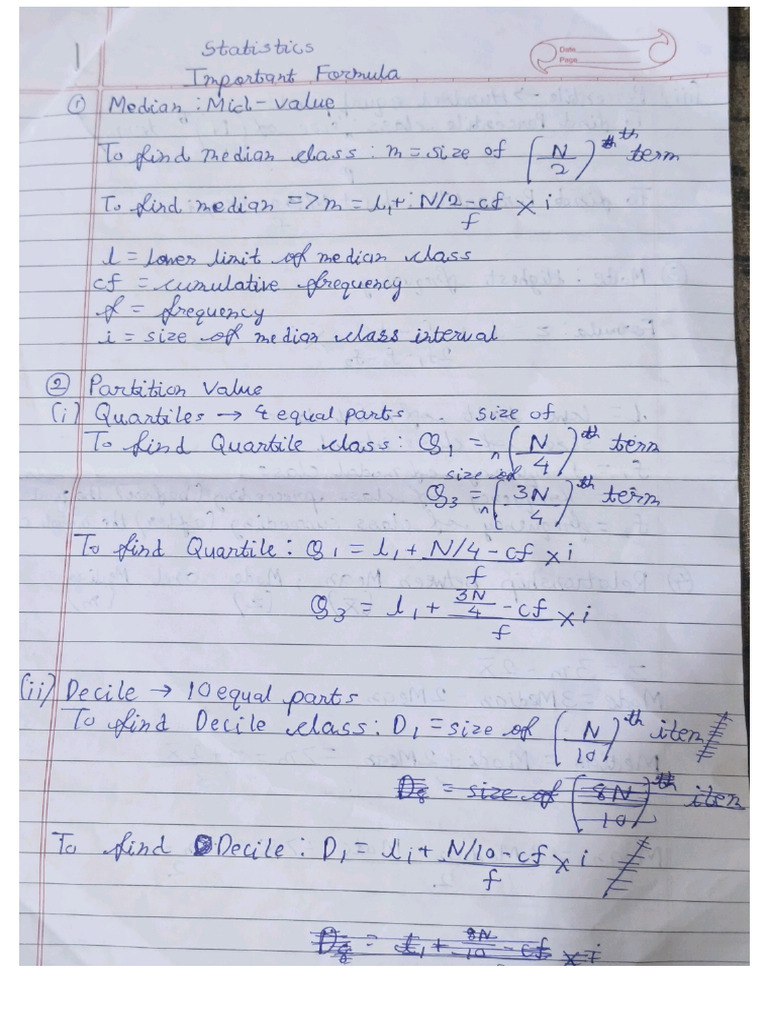 1
Statistics
Date
Page
Important Formula
① Median : Mid-value
To find median class : m = size of (N/2)th term
To find median => m = l₁ + N/2 - cf/f × i
l = lower limit of median class
cf = cumulative frequency
f = frequency
i = size of median class interval
② Partition Value
(i) Quartiles → 4 equal parts
To find Quartile class : Q₁ = size of (N/4)th term
Q₃ = size of (3N/4)th term
To find Quartile : Q₁ = l₁ + N/4 - cf/f × i
Q₃ = l₁ + 3N/4 - cf/f × i
(ii) Decile → 10 equal parts
To find Decile class : D₁ = size of (N/10)th item
D₈ = size of (8N/10)th item
To find Decile : D₁ = l₁ + N/10 - cf/f × i
D₈ = l₁ + 8N/10 - cf × i